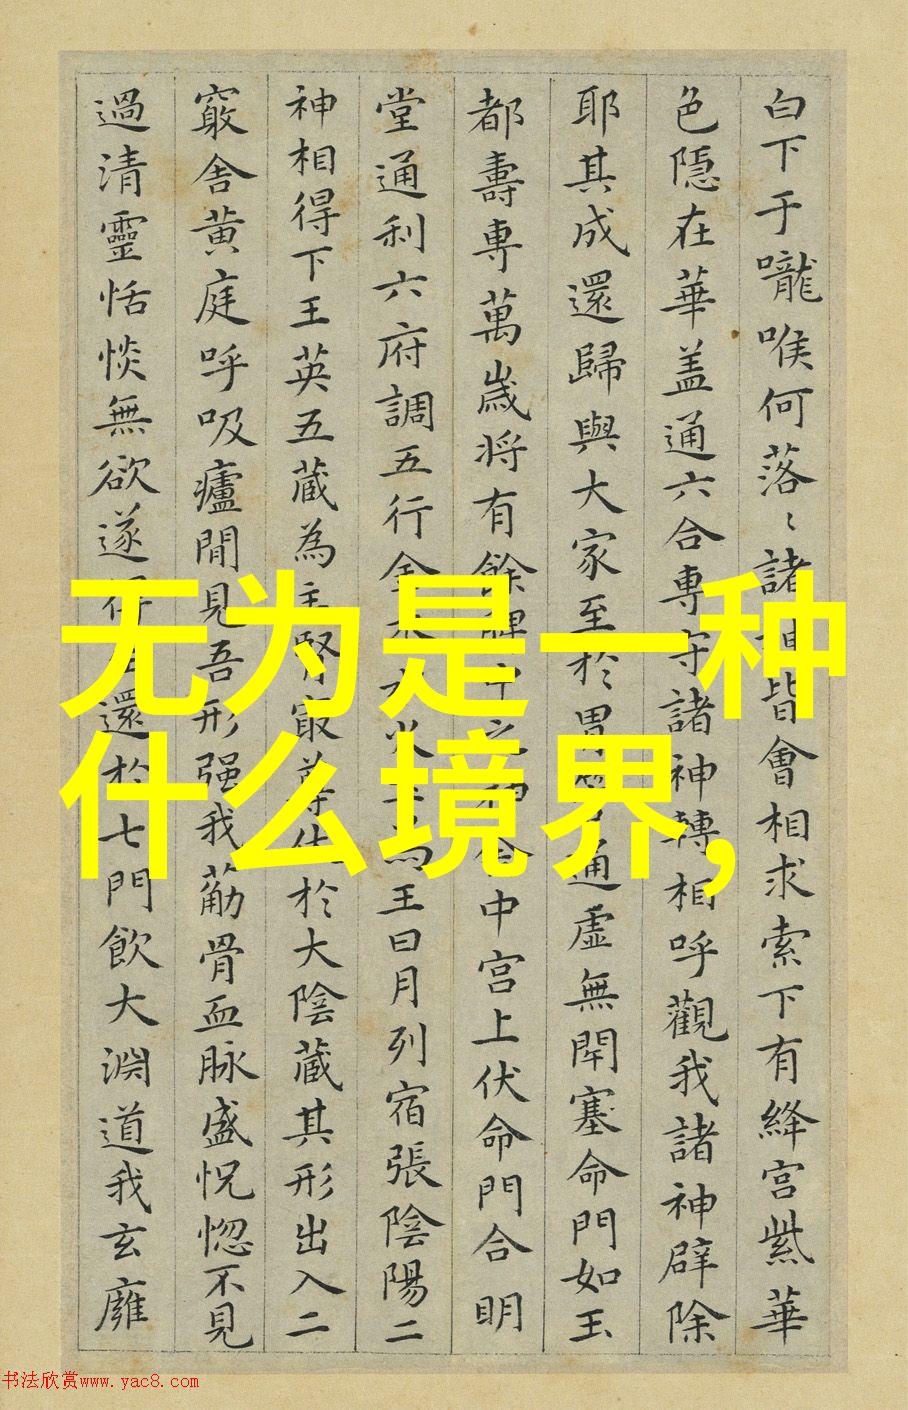 白下于嚨喉何落〻諸神皆會相求索下有絳宮紫華
色隱在華盖通六合專守諸神轉相呼觀我諸神辟除
耶其成還歸與大家至於胃管通虛無閉塞命門如玉
都壽專萬歲将有餘脾中之神舍中宫上伏命門合明
堂通利六府調五行金木水火土為王日月列宿張陰陽二
神相得下王英五藏為主腎㝡尊伏於大陰藏其形出入二
竅舍黄庭呼吸廬間見吾形强我筋骨血脉盛怳惚不見
過清靈恬惔無欲遂得生還於七門飲大淵道我玄廱
无为是一种
什么境界,
书法欣赏www.yac8.com